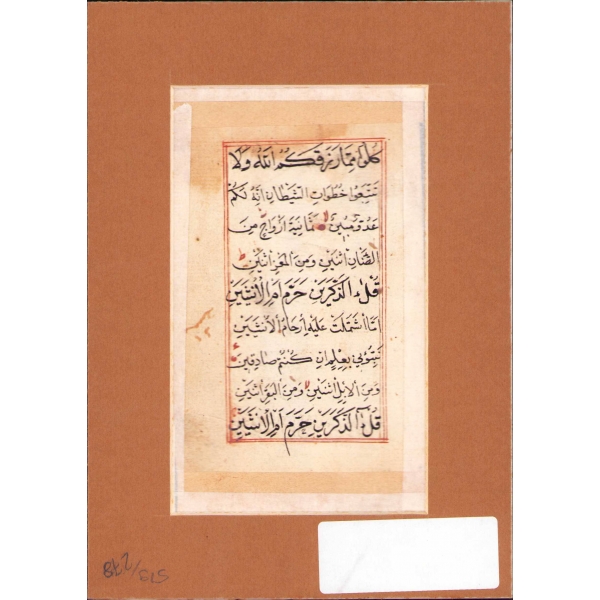 كُلُوا مِمَّا رَزَقَكُمُ اللهُ وَلَا
تَتَّبِعُوا خُطُوَاتِ الشَّيْطَانِ اِنَّهُ لَكُمْ
عَدُوٌّ مُبِينٌ ثَمَانِيَةَ اَزْوَاجٍ مِنَ
الضَّأْنِ اثْنَيْنِ وَمِنَ الْمَعْزِ اثْنَيْنِ
قُلْ ءَآلذَّكَرَيْنِ حَرَّمَ اَمِ الْاُنْثَيَيْنِ
اَمَّا اشْتَمَلَتْ عَلَيْهِ اَرْحَامُ الْاُنْثَيَيْنِ
نَبِّئُونِي بِعِلْمٍ اِنْ كُنْتُمْ صَادِقِينَ
وَمِنَ الْاِبِلِ اثْنَيْنِ وَمِنَ الْبَقَرِ اثْنَيْنِ
قُلْ ءَآلذَّكَرَيْنِ حَرَّمَ اَمِ الْاُنْثَيَيْنِ